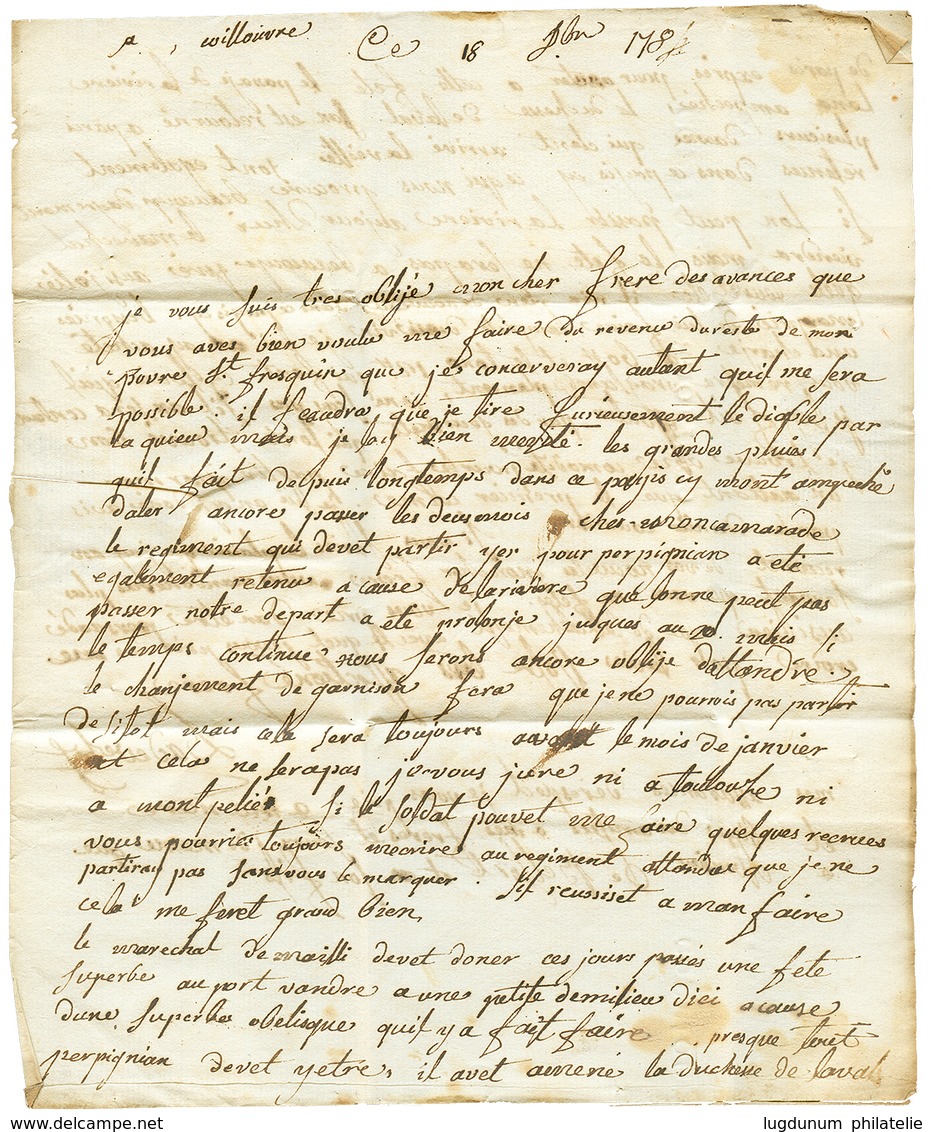 a, willouvre Ce 18 9bre 178
je vous suis tres oblijé mon cher frere des avances que
vous aves bien voulu me faire du revenu du reste de mon
povre St fresquin que je concerveray autant quil me sera
possible. il feaudra, que je tire furieusement le diable par
la quieu mais je lay bien merité. les grandes pluies
quil fait depuis longtemps dans ce paijis cy mont ampeché
daler ancore passer les deus mois ches mon camarade
le regiment qui devet partir yer pour perpignian a été
egalement retenu a cause de la riviere que lonne peut pas
passer notre depart a été prolonje jusques au 20. mais si
le temps continue nous serons ancore oblije dattandre.
le chanjement de garnison fera que je ne pourois pas partir
de sitot mais cela sera toujours avant le mois de janvier
et cela ne sera pas je vous jure ni a toulouse ni
a montpelié si le soldat pouvet me faire quelques recrues
vous pourries toujours mecrire au regiment attandu que je ne
partiray pas sans vous le marquer. sil reussiset a man faire
cela me feret grand bien,
le marechal de mailli devet doner ces jours passés une fete
superbe au port vandre a une petite demilieu dici a cause
dune superbe obelisque quil y a fait faire presque tout
perpignian devet y etre, il avet amené la duchesse de laval
www.delcampe.net
lugdunum philatelie